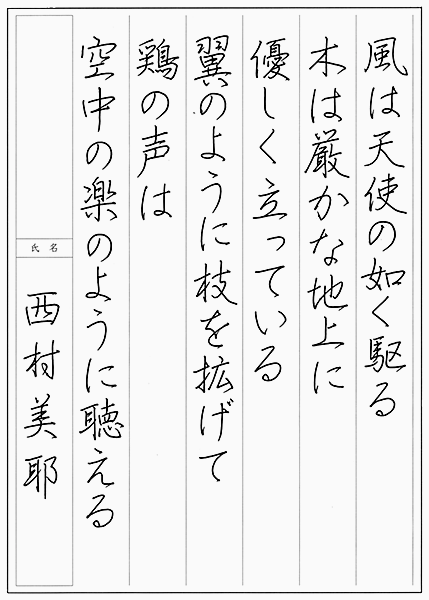 風は天使の如く駆る
木は厳かな地上に
優しく立っている
翼のように枝を拡げて
鶏の声は
空中の楽のように聴える
氏名
西村美耶